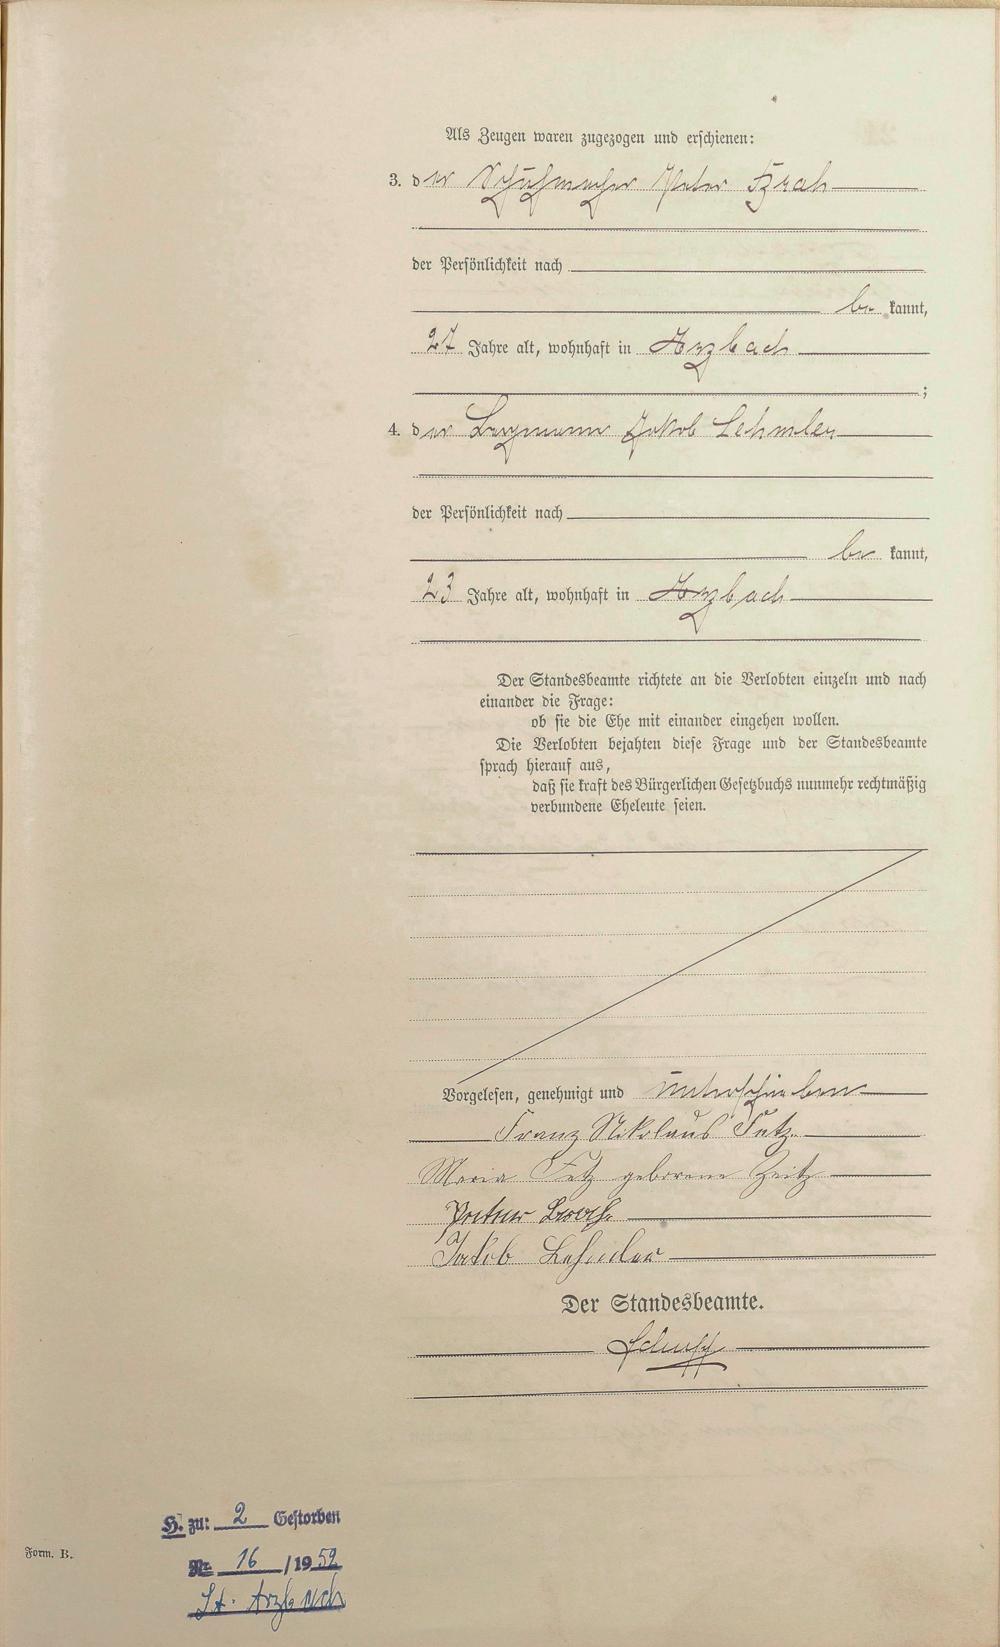 Als Zeugen waren zugezogen und erschienen:
3. der Schuhmacher Peter
der Persönlichkeit nach
bekannt,
27 Jahre alt, wohnhaft in Arzbach
;
4. der Bergmann Jakob Lehmler
der Persönlichkeit nach
bekannt,
23 Jahre alt, wohnhaft in Arzbach
Der Standesbeamte richtete an die Verlobten einzeln und nach
einander die Frage:
ob sie die Ehe mit einander eingehen wollen.
Die Verlobten bejahten diese Frage und der Standesbeamte
sprach hierauf aus,
daß sie kraft des Bürgerlichen Gesetzbuchs nunmehr rechtmäßig
verbundene Eheleute seien.
Vorgelesen, genehmigt und unterschrieben
Franz Nikolaus Fetz.
Maria Fetz geborene Zeitz
Jakob Lehmler
Der Standesbeamte.
H. zu: 2 Gestorben
Nr. 16 / 1952
St. Arzbach
Form. B.